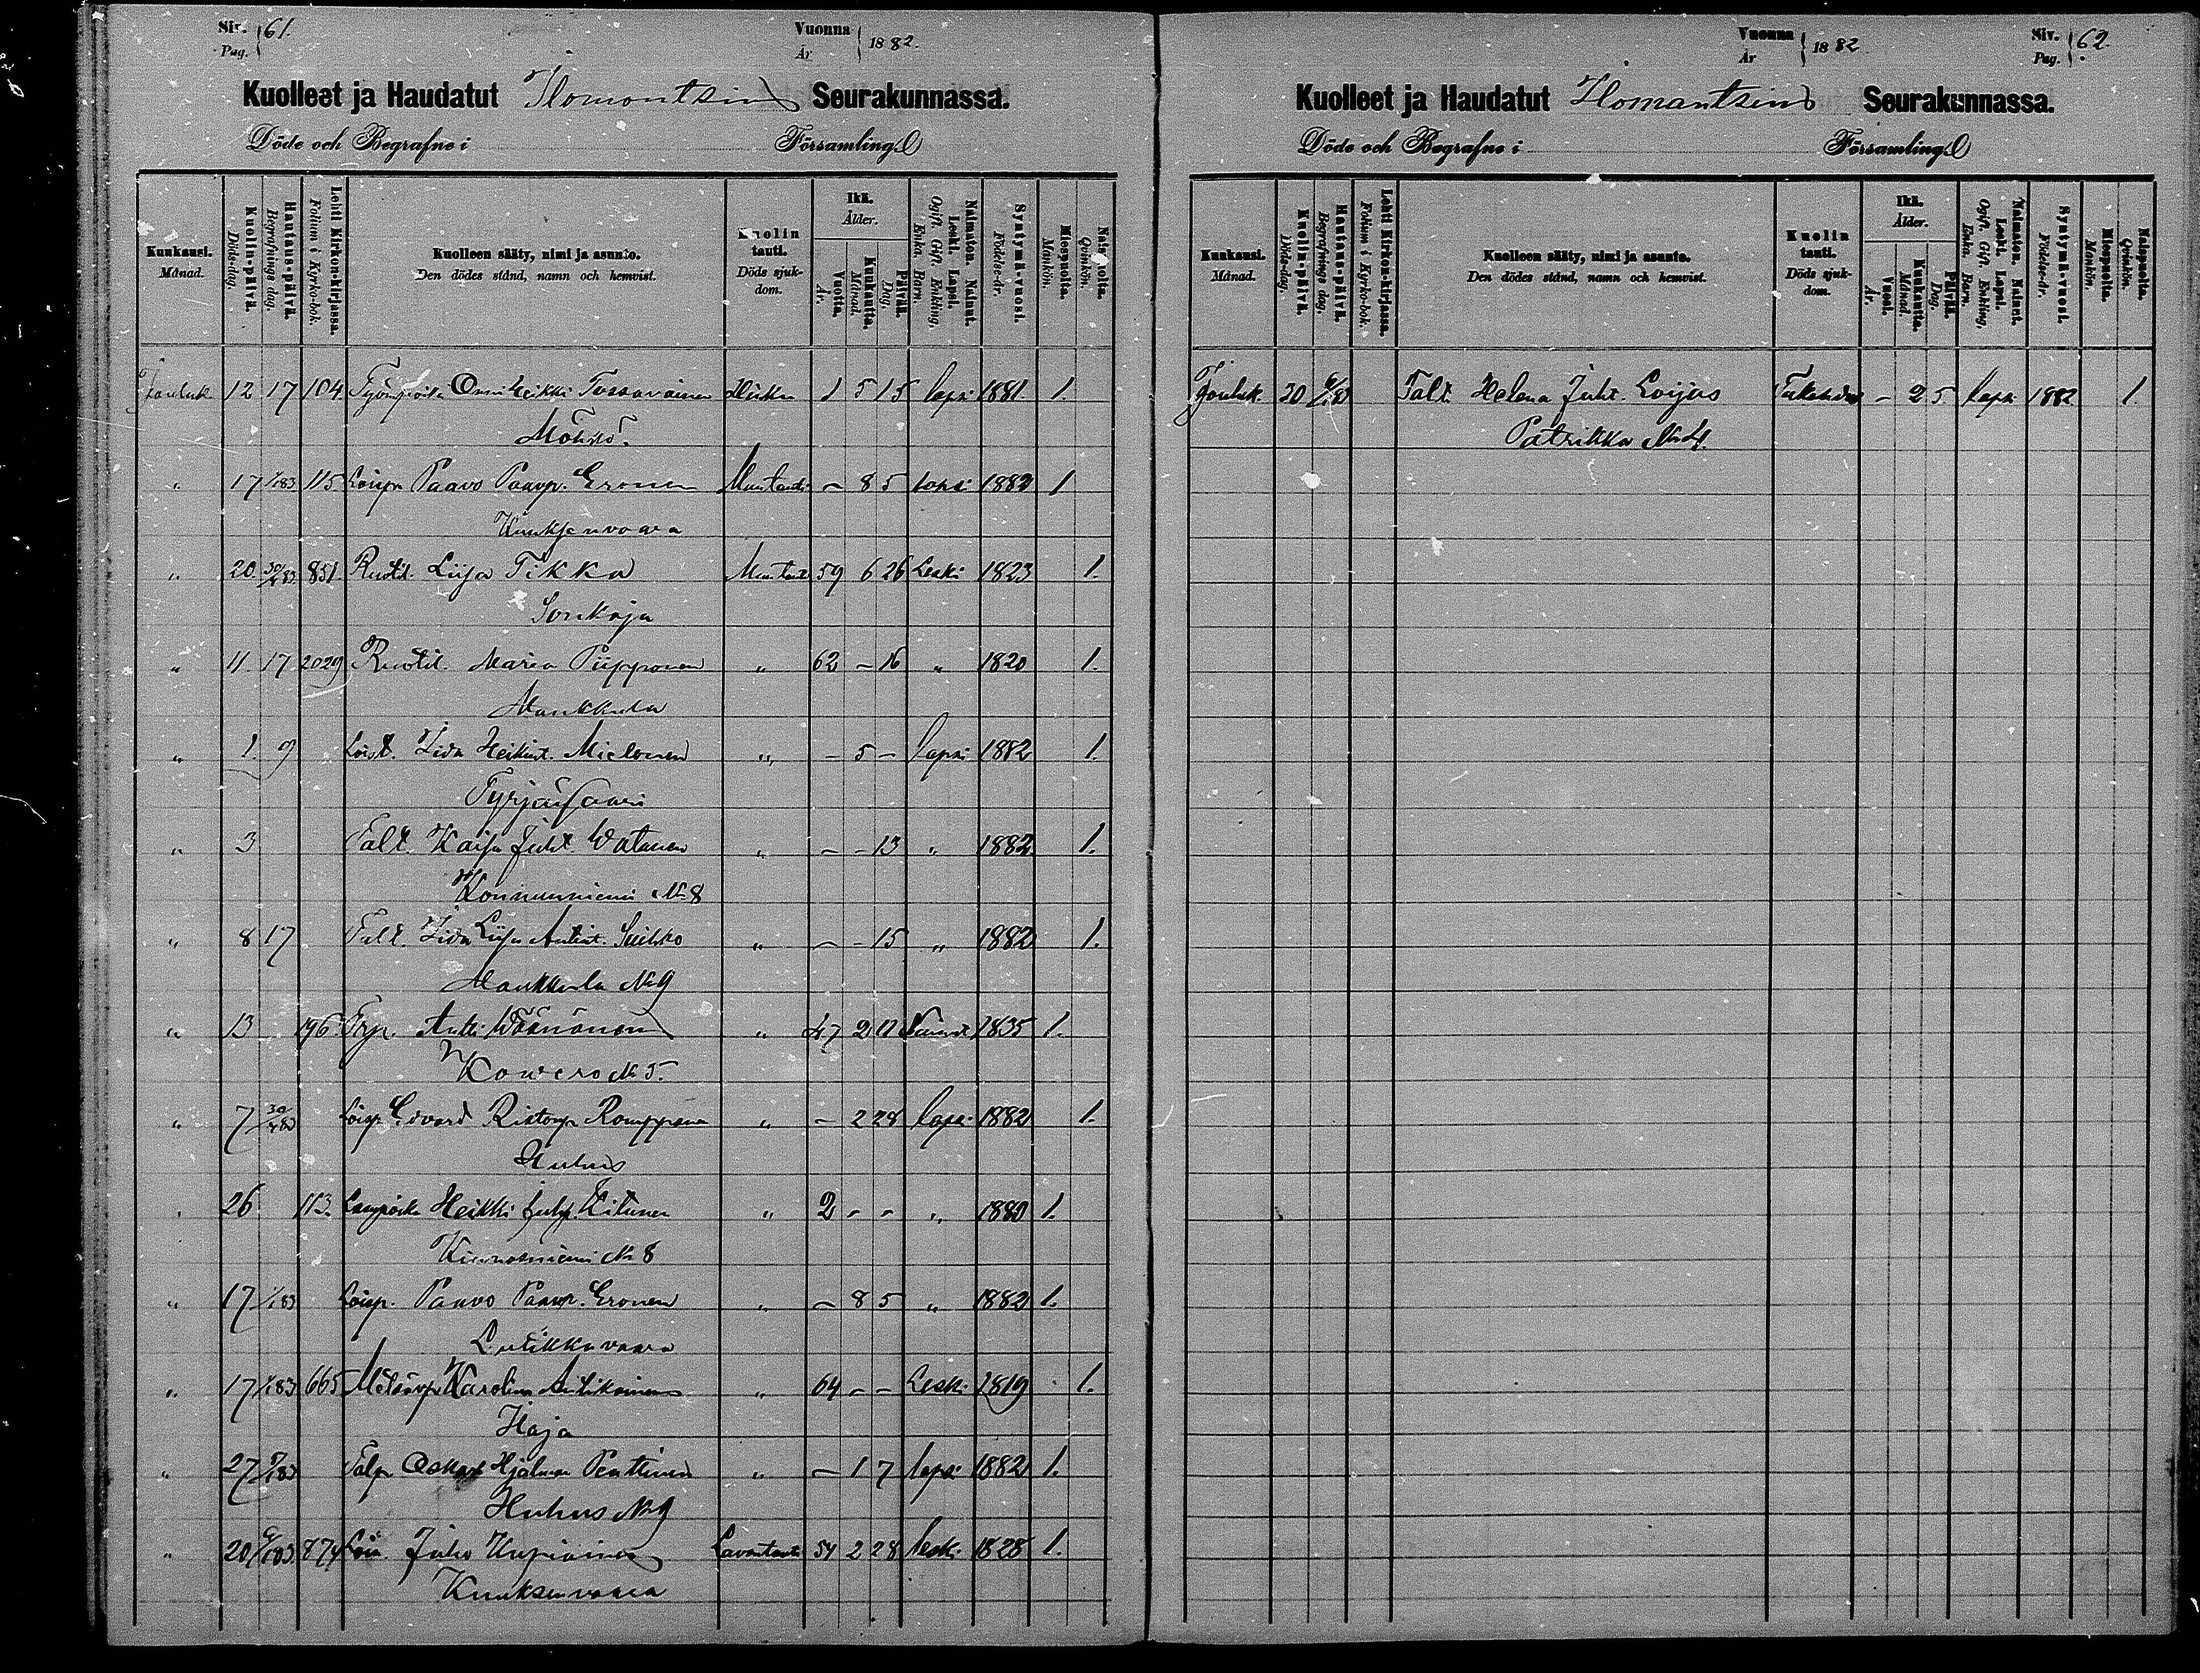 Siv. 61. Vuonna 1882.
Pag. År
Kuolleet ja Haudatut Ilomantsin Seurakunnassa.
Döde och Begrafne i Församling
Kuukausi. Månad.
Kuolin-päivä. Döds-dag.
Hautaus-päivä. Begrafnings dag.
Lehti Kirkon-kirjassa. Folium i Kyrko-bok.
Kuolleen sääty, nimi ja asunto.
Den dödes stånd, namn och hemvist.
Kuolin tauti. Döds sjuk-dom.
Ikä. Ålder.
Vuotta. År.
Kuukautta. Månad.
Päivää. Dag.
Naimaton. Nainut. Leski. Lapsi.
Ogift. Gift. Enkling. Enka. Barn.
Syntymä-vuosi. Födelse-år.
Miespuolta. Mankön.
Naispuolta. Qvinkön.
Jouluk. 12 17 104. Työmpoika Onni Heikki Tossavainen 1 5 15 lapsi 1881. 1.
Möhkö.
" 17 1/183 115 Loisp. Paavo Paavp. Eronen Muu tauti – 8 5 lapsi 1882 1
Kuuksenvaara
" 20. 30/4 83 851. Ruotil. Liisa Tikka Muu tauti 59 6 26 Leski 1823 1.
Sonkaja
" 11. 17 2029 Ruotil. Maria Piipponen " 62 – 16 " 1820 1.
Maukkula
" 1. 9 Loist. Iida Heikint. Mielonen " – 5 – lapsi 1882 1.
Tyrjänsaari
" 3 Talt. Kaisa Juht. Watanen " – – 13 " 1882 1.
Konnunniemi No 8
" 8 17 Talt. Iida Liisa Antint. Suihko " – – 15 " 1882 1.
Maukkula No 9
" 13 196 Antti Wäänänen " 47 2 11 Nainut 1835 1.
Kowero No 5.
" 7 30/4 83 Loisp. Edvard Ristonp. Romppanen " – 2 28 lapsi 1882 1.
Huhus
" 26 113. Heikki Juhp. Kitunen " 2 – – " 1880 1.
No 8
" 17 1/183 Loisp. Paavo Paavp. Eronen " – 8 5 " 1882 1.
Lutikkavaara
" 17 1/183 665 Karolina Antikainen " 64 – – Leski 1819 1.
Haja
" 27 7/183 Talp. Oskar Hjalmar Penttinen " – 1 7 lapsi 1882 1.
Huhus No 9
" 20 6/183. 874 Lois. Juho Kupiainen Lavantauti 54 2 28 leski 1828 1.
Kuuksenvaara
Vuonna 1882 Siv. 62.
År Pag.
Kuolleet ja Haudatut Ilomantsin Seurakunnassa.
Döde och Begrafne i Församling
Kuukausi. Månad.
Kuolin-päivä. Döds-dag.
Hautaus-päivä. Begrafnings dag.
Lehti Kirkon-kirjassa. Folium i Kyrko-bok.
Kuolleen sääty, nimi ja asunto.
Den dödes stånd, namn och hemvist.
Kuolin tauti. Döds sjuk-dom.
Ikä. Ålder.
Vuosi. År.
Kuukautta. Månad.
Päivää. Dag.
Naimaton. Nainut. Leski. Lapsi.
Ogift. Gift. Enkling, Enka. Barn.
Syntymä-vuosi. Födelse-år.
Miespuolta. Mankön.
Naispuolta. Qvinkön.
Jouluk. 30 Talt. Helena Juht. Loijas – 2 5 lapsi 1882 1.
Patrikka No 4.